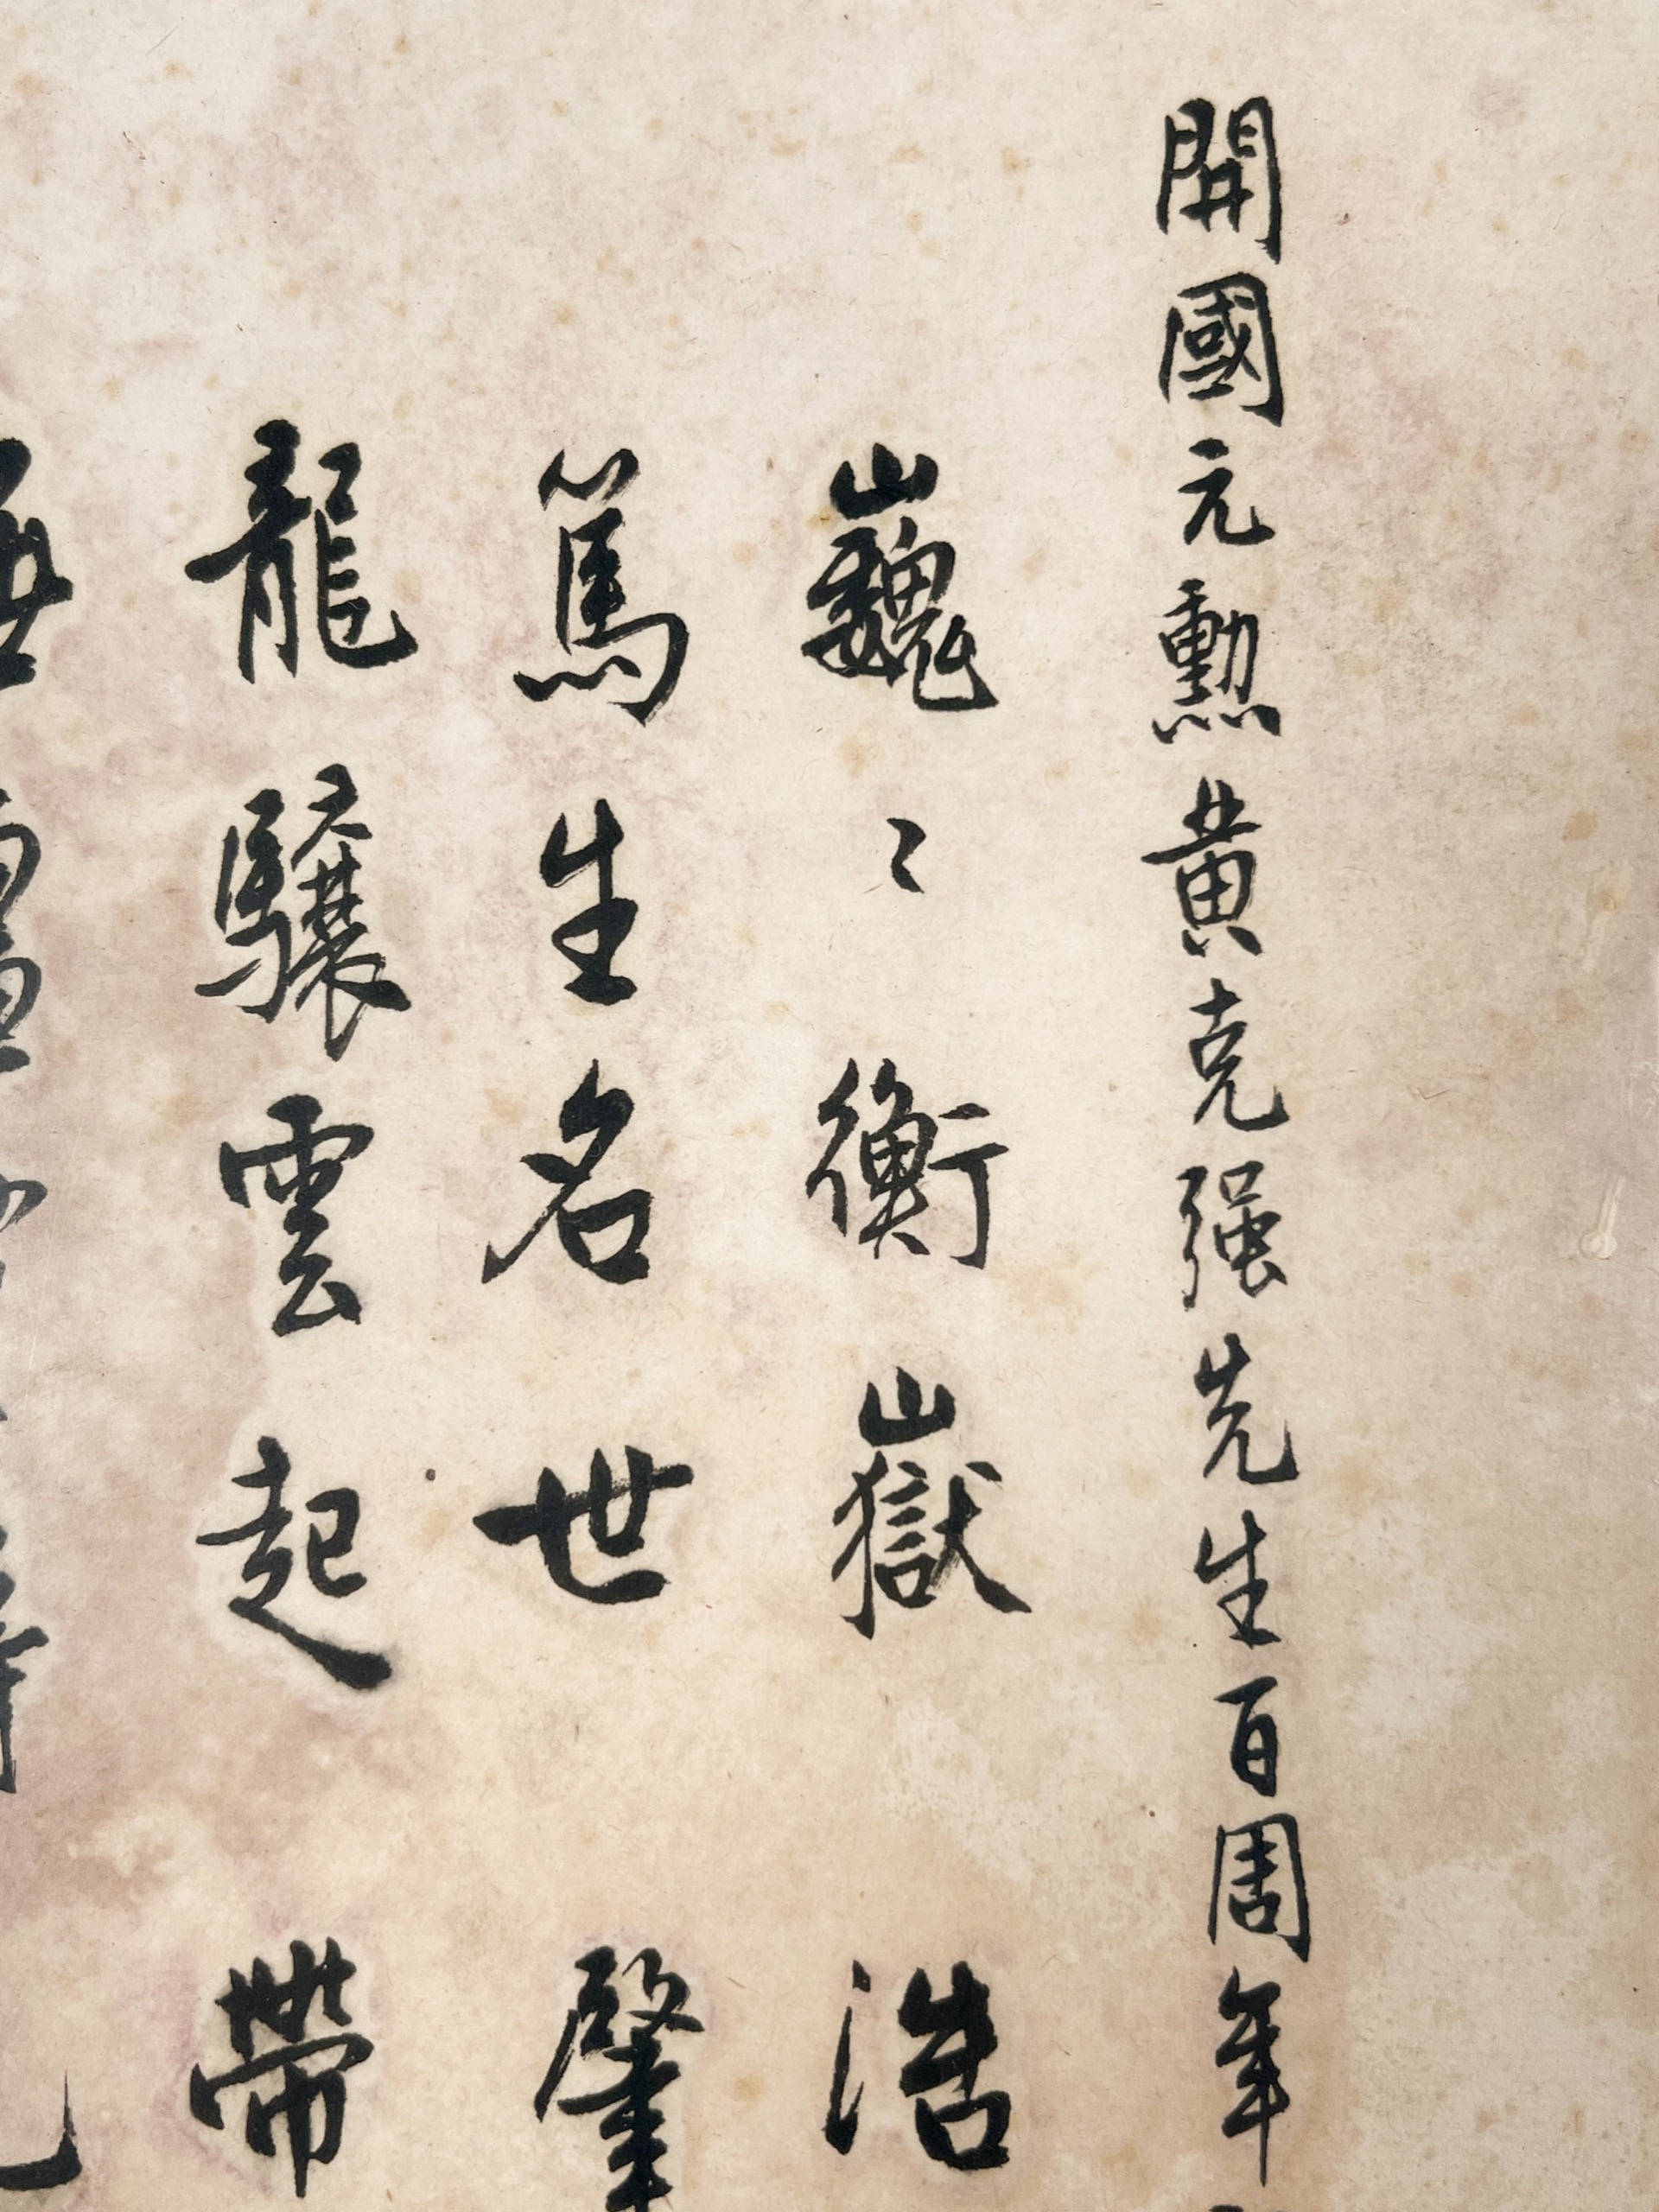 開國元勳黃克强先生百周年
巍〻衡嶽 浩
篤生名世 肇
龍驤雲起 帶